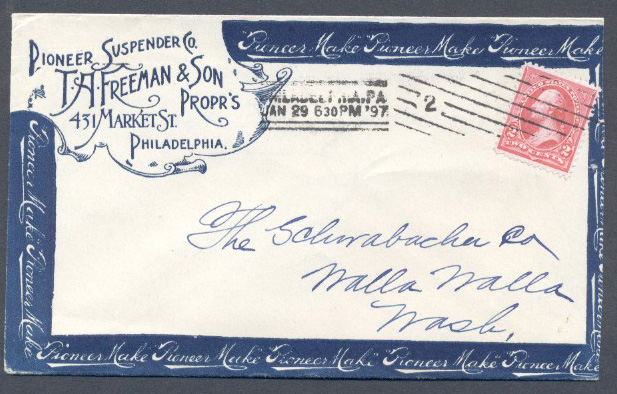 PIONEER SUSPENDER CO.
T.A. FREEMAN & SON
PROPR'S
431 MARKET ST.
PHILADELPHIA.
"Pioneer Make" "Pioneer Make" "Pioneer Make
PHILADELPHIA, PA.
JAN 29 630PM '97
2
2 TWO CENTS 2
The Schwabacher Co
Walla Walla
Wash.
Pioneer Make" "Pioneer Make
"Pioneer Make" "Pioneer Make" "Pioneer Make" "Pioneer Make" "Pioneer Make